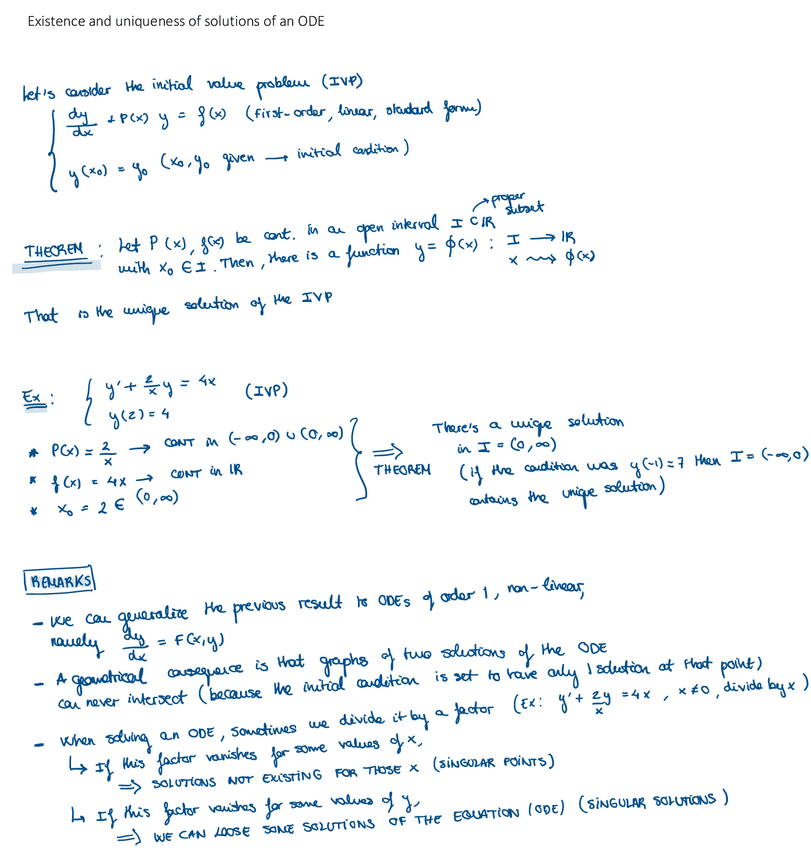 Existence and uniqueness of solutions of an ODE
Let's consider the initial value problem (IVP)
{ dy/dx + P(x) y = f(x) (first-order, linear, standard form)
y(x₀) = y₀ (x₀, y₀ given → initial condition)
THEOREM : Let P(x), f(x) be cont. in an open interval I ⊂ IR → proper subset
with x₀ ∈ I. Then, there is a function y = ϕ(x) : I → IR
x ⇝ ϕ(x)
That is the unique solution of the IVP
Ex: { y' + 2/x y = 4x (IVP)
y(2) = 4
* P(x) = 2/x → CONT in (-∞,0) ∪ (0,∞)
* f(x) = 4x → CONT in IR
* x₀ = 2 ∈ (0,∞)
} ⟹ THEOREM
There's a uniqe solution
in I = (0,∞)
(if the condition was y(-1)=7 then I = (-∞,0)
contains the unique solution)
REMARKS
- We can generalize the previous result to ODEs of order 1, non-linear,
namely dy/dx = F(x,y)
- A geometrical consequence is that graphs of two solutions of the ODE
can never intersect (because the initial condition is set to have only 1 solution at that point)
- When solving an ODE, sometimes we divide it by a factor (Ex: y' + 2y/x = 4x, x≠0, divide by x)
↳ If this factor vanishes for some values of x,
⟹ SOLUTIONS NOT EXISTING FOR THOSE X (SINGULAR POINTS)
↳ If this factor vanishes for some values of y,
⟹ WE CAN LOOSE SOME SOLUTIONS OF THE EQUATION (ODE) (SINGULAR SOLUTIONS)